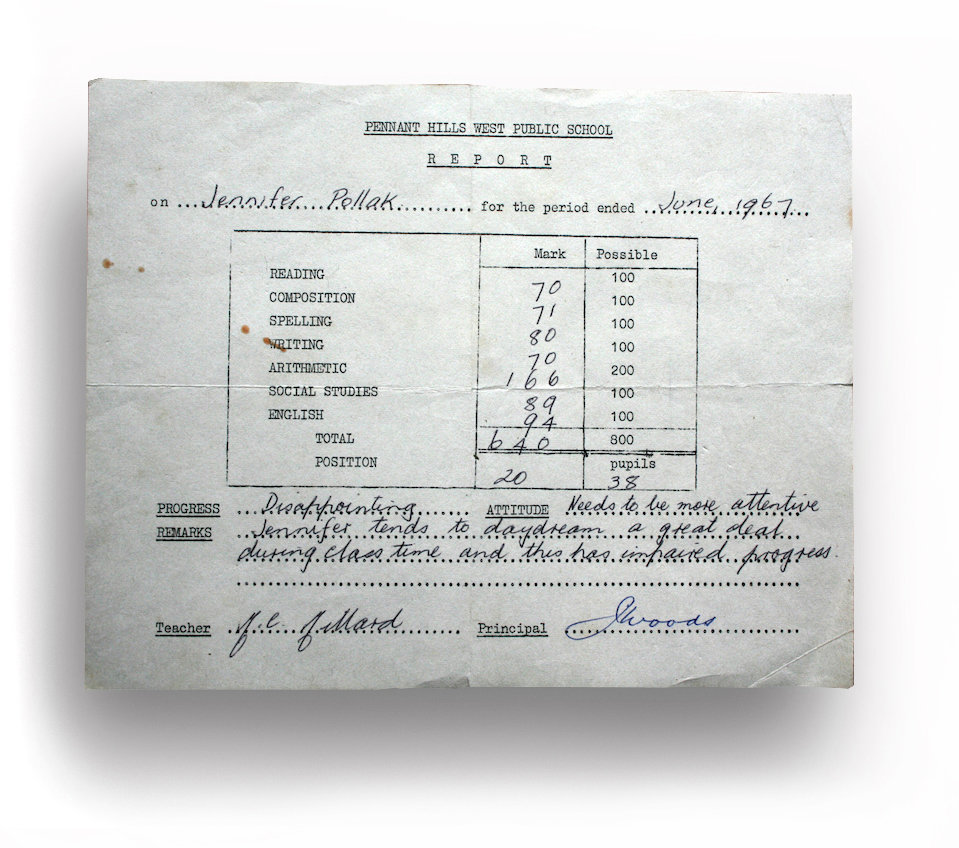 PENNANT HILLS WEST PUBLIC SCHOOL
REPORT
on Jennifer Pollak for the period ended June, 1967
Mark Possible
READING 70 100
COMPOSITION 71 100
SPELLING 80 100
WRITING 70 100
ARITHMETIC 166 200
SOCIAL STUDIES 89 100
ENGLISH 94 100
TOTAL 640 800
POSITION 20 pupils 38
PROGRESS Disappointing ATTITUDE Needs to be more attentive
REMARKS Jennifer tends to daydream a great deal
during class time and this has impaired progress.
Teacher Principal Woods